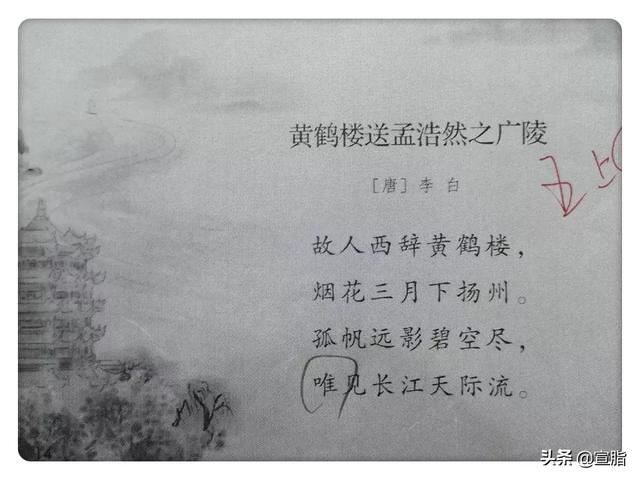 黄鹤楼送孟浩然之广陵
[唐] 李 白
五上(
故人西辞黄鹤楼，
烟花三月下扬州。
孤帆远影碧空尽，
唯见长江天际流。
头条 @宣脂